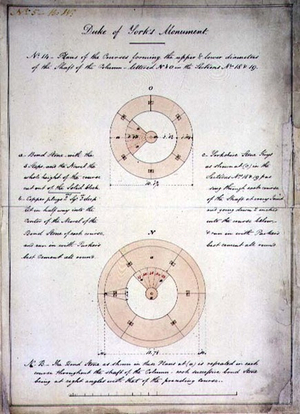 Duke of York's Monument
No 14 - Plans of the Courses forming the upper & lower diameters
of the Shaft of the Column - lettered N & O in the Sections No 18 & 19.
O
a. Bond Stone with the
Steps and the Newel the
whole height of the course
cut out of the Solid block
b. Copper plugs
let in half way into the
Center of the Newel of the
Bond Stone of each course,
and run in with Parker's
best Cement all round
c. Yorkshire Stone
as shown at (c) in the
Sections No 18 & 19
through each course
of the Shaft at every Joint
and going down
into the course below,
& run in with Parker's
best cement all round
N
N.B. The Bond Stone as shown in these Plans at (a) is repeated in each
course throughout the shaft of the Column - each successive bond Stone
being at right angles with that of the preceding course.